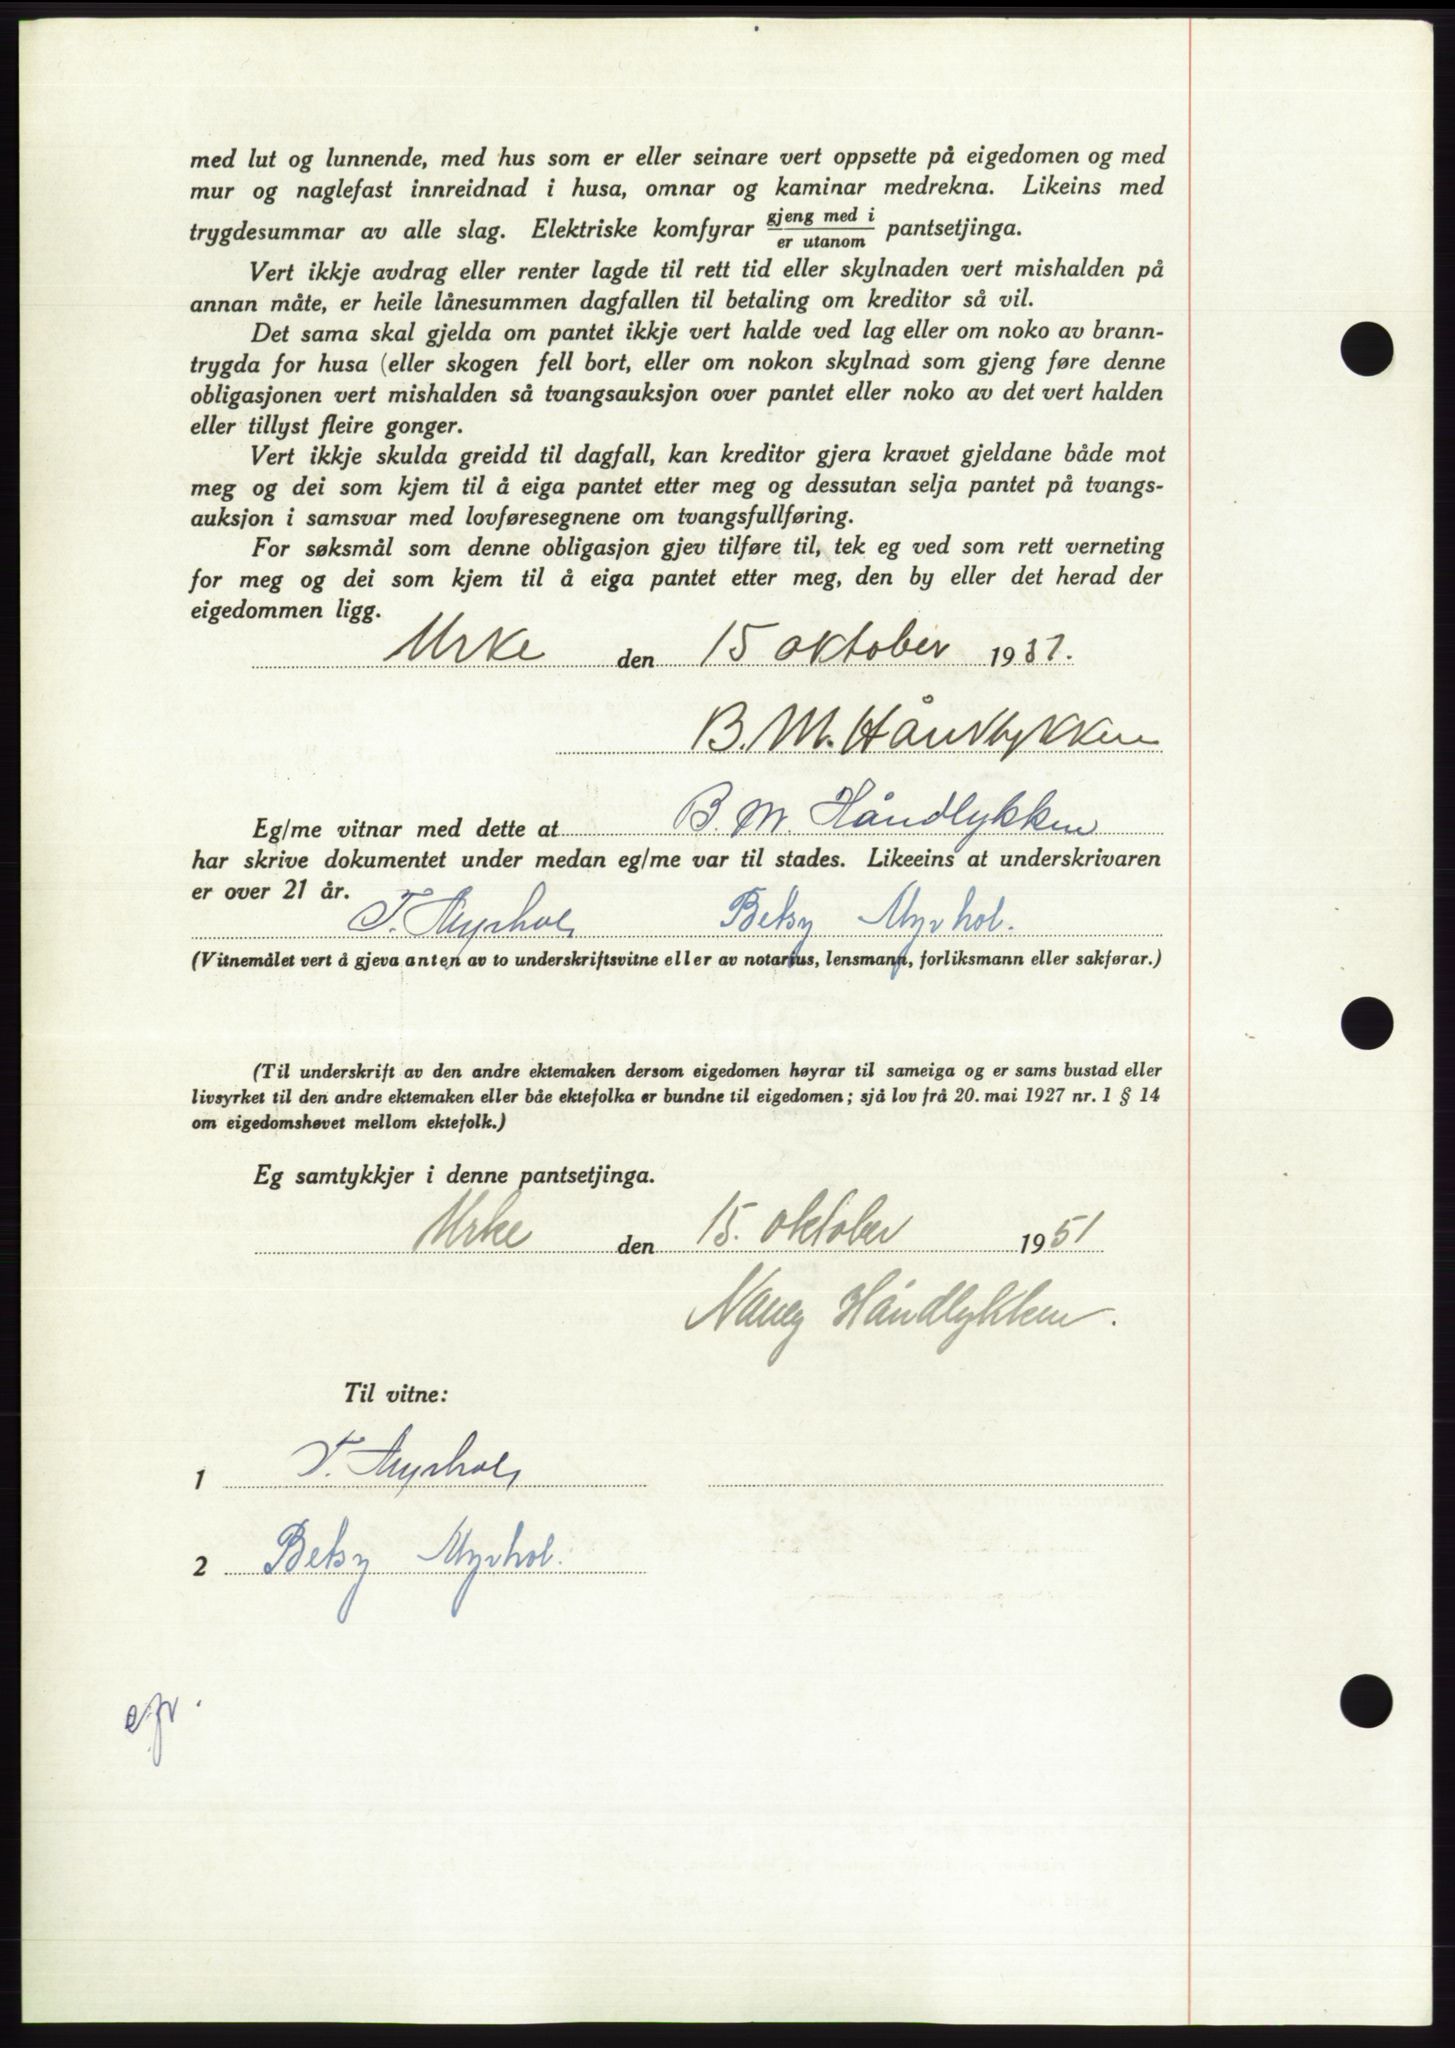 med lut og lunnende, med hus som er eller seinare vert oppsette på eigedomen og med
mur og naglefast innreidnad i husa, omnar og kaminar medrekna. Likeins med
trygdesummar av alle slag. Elektriske komfyrar gjeng med i / er utanom pantsetjinga.
Vert ikkje avdrag eller renter lagde til rett tid eller skylnaden vert mishalden på
annan måte, er heile lånesummen dagfallen til betaling om kreditor så vil.
Det sama skal gjelda om pantet ikkje vert halde ved lag eller om noko av brann-
trygda for husa (eller skogen fell bort, eller om nokon skylnad som gjeng føre denne
obligasjonen vert mishalden så tvangsauksjon over pantet eller noko av det vert halden
eller tillyst fleire gonger.
Vert ikkje skulda greidd til dagfall, kan kreditor gjera kravet gjeldane både mot
meg og dei som kjem til å eiga pantet etter meg og dessutan selja pantet på tvangs-
auksjon i samsvar med lovføresegnene om tvangsfullføring.
For søksmål som denne obligasjon gjev tilføre til, tek eg ved som rett verneting
for meg og dei som kjem til å eiga pantet etter meg, den by eller det herad der
eigedommen ligg.
Urke den 15 oktober 1951.
B. M. Håndlykken
Eg/me vitnar med dette at B. M. Håndlykken
har skrive dokumentet under medan eg/me var til stades. Likeeins at underskrivaren
er over 21 år.
T. Myrhol Betsy Myrhol.
(Vitnemålet vert å gjeva anten av to underskriftsvitne eller av notarius, lensmann, forliksmann eller sakførar.)
(Til underskrift av den andre ektemaken dersom eigedomen høyrar til sameiga og er sams bustad eller
livsyrket til den andre ektemaken eller båe ektefolka er bundne til eigedomen; sjå lov frå 20. mai 1927 nr. 1 § 14
om eigedomshøvet mellom ektefolk.)
Eg samtykkjer i denne pantsetjinga.
Urke den 15. oktober 1951
Nancy Håndlykken.
Til vitne:
1 T. Myrhol
2 Betsy Myrhol.